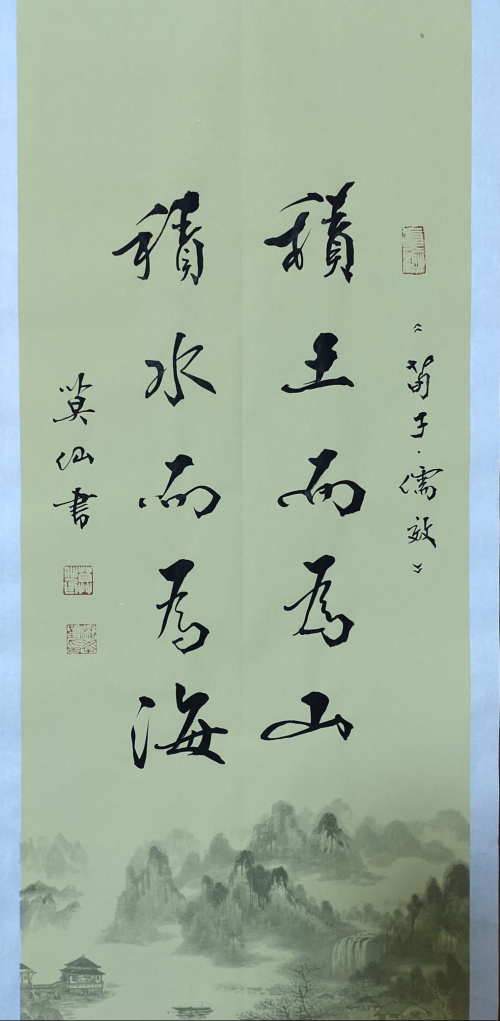 《荀子·儒效》
積土而為山
積水而為海
莫仙書